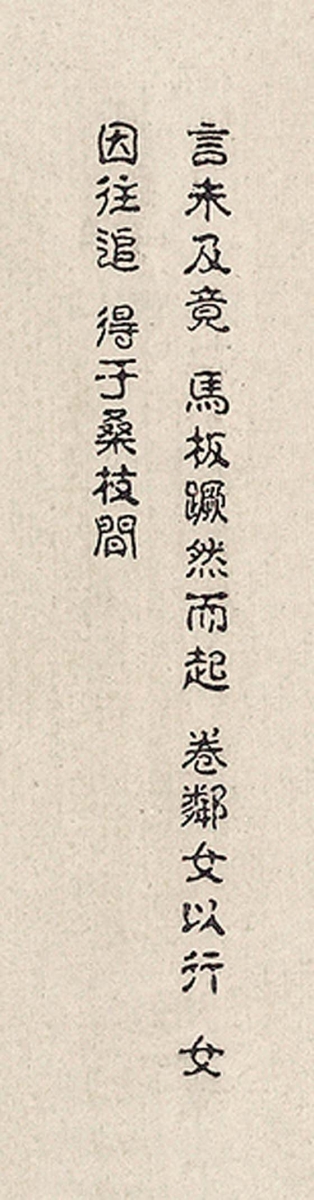 言未及竟 馬板蹶然而起 卷鄰女以行 女
因往追 得于桑枝間